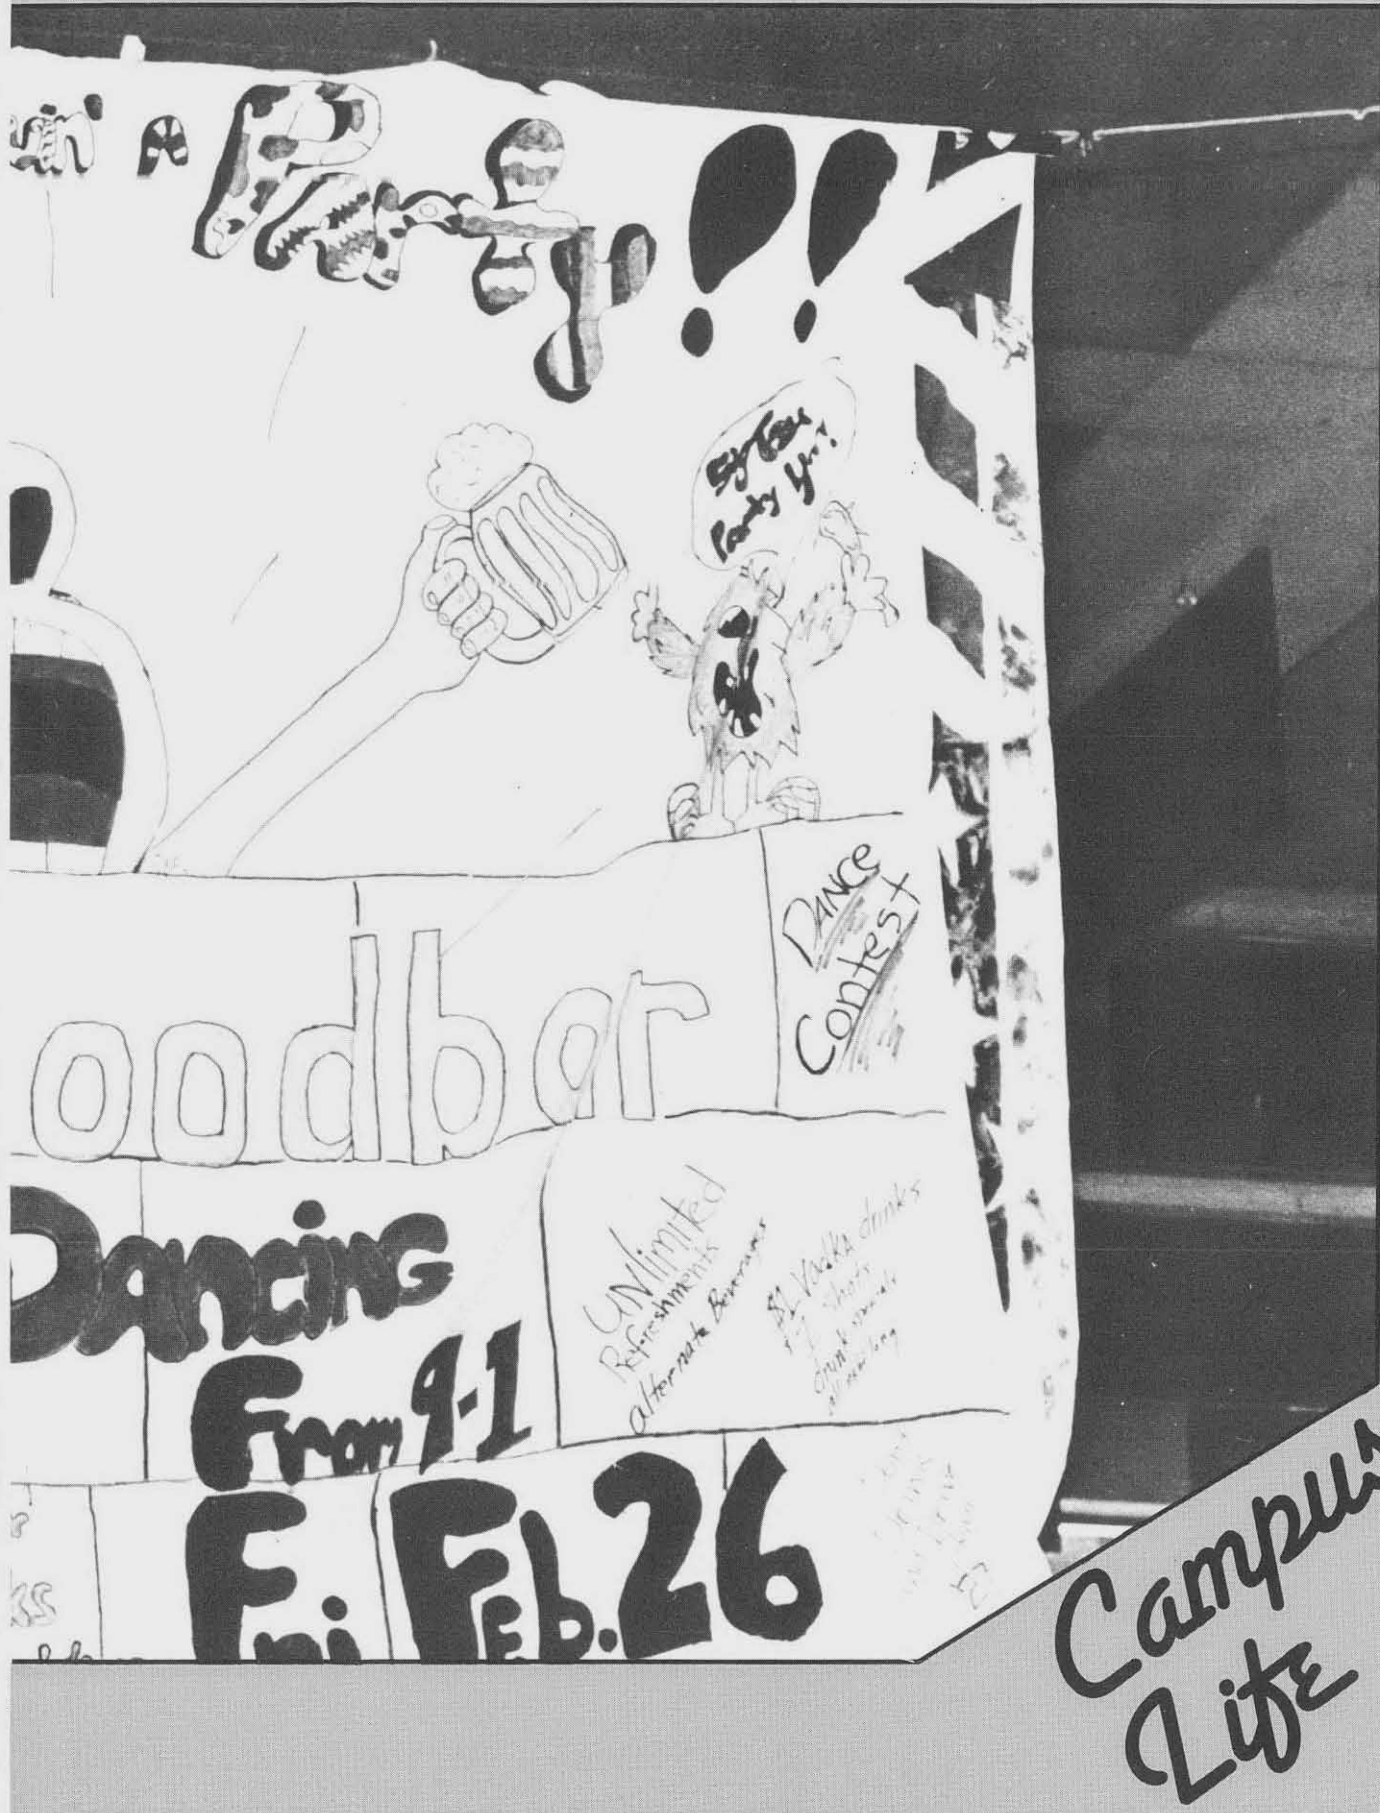 a Party!!
Party
oodbar
DANCE
Contest
Dancing
From 9-1
UNlimited
Refreshments
alternate Beverages
Vodka drinks
shots
drink specials
all nite long
Fri Feb. 26
Campus
Life